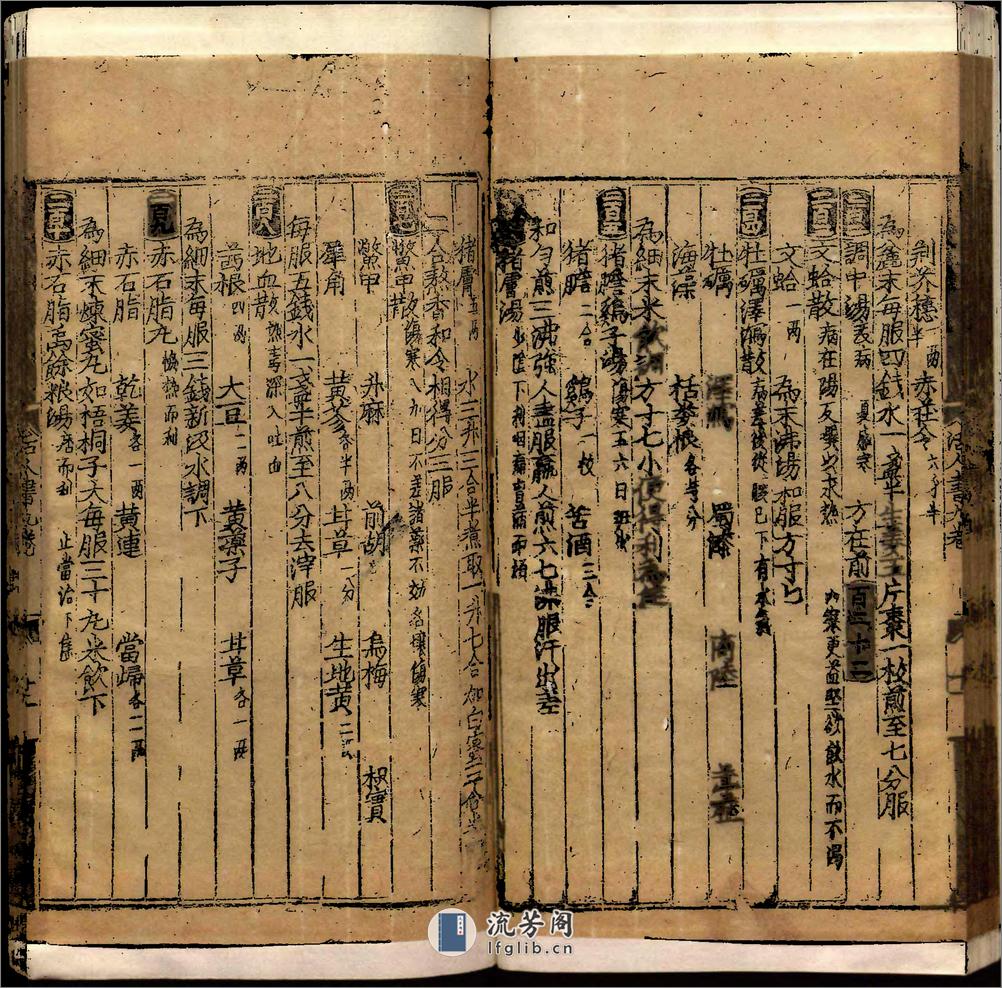 荆芥穗半両 赤茯令六分半
為麄末每服四錢水一盞半生姜五片棗一枚煎至七分服
調中湯表病 夏感寒 方在前百三十二
文蛤散病在陽反噀以水熱 肉粟更益堅欲飲水而不渴
文蛤一両 為末沸湯和服方寸匕
二百四
牡蠣澤瀉散病差後從腰已下有水氣
牡蠣 澤瀉 蜀漆 商陸 葶藶
海藻 栝蔞根各等分
為細末米飲調方寸七小便得利為
二百五
猪膽鷄子湯傷寒五六日
猪膽二合 鷄子一枚 苦酒三合
和勻煎三沸強人盡服羸人煎六七沸服汗出差
猪膚湯少陰下利咽痛胷滿而煩
猪膚五両 水三升三合半煮取一升七合加白
合熬香和令相得分三服
鱉甲散傷寒八九日不差諸藥不効名壞傷寒
鱉甲 升麻 前胡 烏梅 枳實
犀角 黃芩各半両 甘草一分 生地黃二
每服五錢水一盞半煎至八分去滓服
二百八
地血散熱毒深入吐血
茜根四両 大豆二両 黃藥子 甘草各一両
為細末每服三錢新汲水調下
二百九
赤石脂丸協熱而利
赤石脂 乾姜各一両 黃連 當歸各二両
為細末煉蜜丸如梧桐子大每服三十丸米飲下
二百十
赤石脂禹餘粮湯痞而利 止當治下焦
流芳阁
lfglib.cn